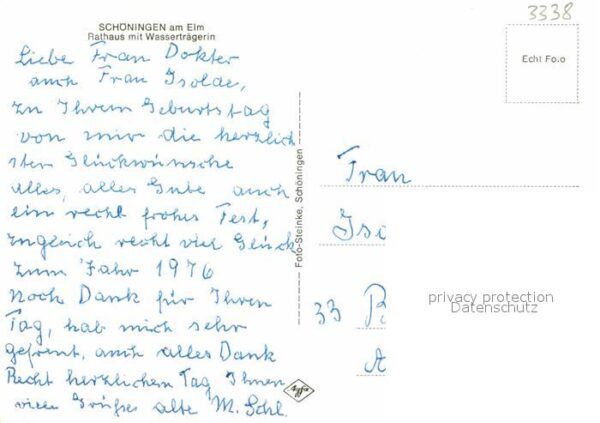 SCHÖNINGEN am Elm
Rathaus mit Wasserträgerin
3338
Echt Foto
Liebe Frau Dokter
auch Frau Isolde,
zu Ihrem Geburtstag
von mir die herzlich
sten Glückwünsche
alles, alles Gute auch
ein recht frohes Fest,
zugleich recht viel Glück
zum Jahr 1976
Noch Dank für Ihren
Tag, hab mich sehr
gefreut, auch alles Dank
Recht herzlichen Tag Ihnen
viele Grüße alte M. Schl.
Foto-Steinke, Schöningen
Agfa
Frau
Iso
33 B
A
privacy protection
Datenschutz